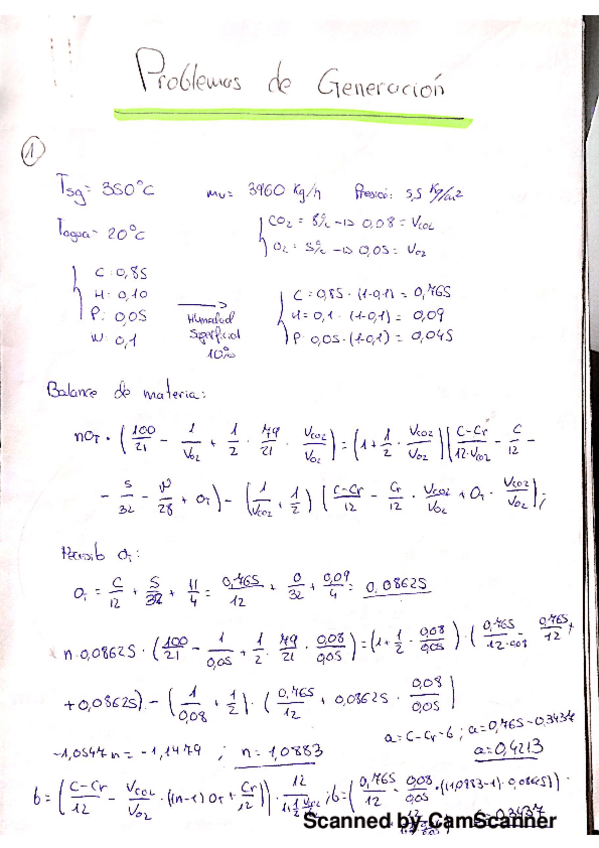 Problemas de Generación
1
Tsg = 350°C mv = 3960 Kg/h Presión: 5,5 Kg/cm2
Tagua = 20°C CO2 = 8% -> 0,08 = VCO2
O2 = 5% -> 0,05 = VO2
C: 0,85 C = 0,85 · (1-0,1) = 0,765
H: 0,10 Humedad H = 0,1 · (1-0,1) = 0,09
P: 0,05 Superficial P: 0,05 · (1-0,1) = 0,045
W: 0,1 10%
Balance de materia:
nOT · (100/21 - 1/VO2 + 1/2 · 79/21 · VCO2/VO2) = (1 + 1/2 · VCO2/VO2) (C-Cr/12·VCO2 - C/12 -
- S/32 - N/28 + OT) - (1/VCO2 + 1/2) (C-Cr/12 - Cr/12 · VCO2/VO2 + OT · VCO2/VO2);
OT:
OT = C/12 + S/32 + H/4 = 0,765/12 + 0/32 + 0,09/4 = 0,08625
n·0,08625 · (100/21 - 1/0,05 + 1/2 · 79/21 · 0,08/0,05) = (1 + 1/2 · 0,08/0,05) · (0,765/12·0,08 - 0,765/12 +
+ 0,08625) - (1/0,08 + 1/2) · (0,765/12 + 0,08625 · 0,08/0,05)
a = C-Cr-b ; a = 0,765-0,3437
-1,0547 n = -1,1479 ; n = 1,0883 a = 0,4213
b = (C-Cr/12 - VCO2/VO2 · ((n-1) OT + Cr/12)) · 12/1+1/2 VCO2/VO2 ; b = (0,765/12 - 0,08/0,05 · ((1,0883-1)·0,08625)) ·
b = 0,3437
Scanned by CamScanner